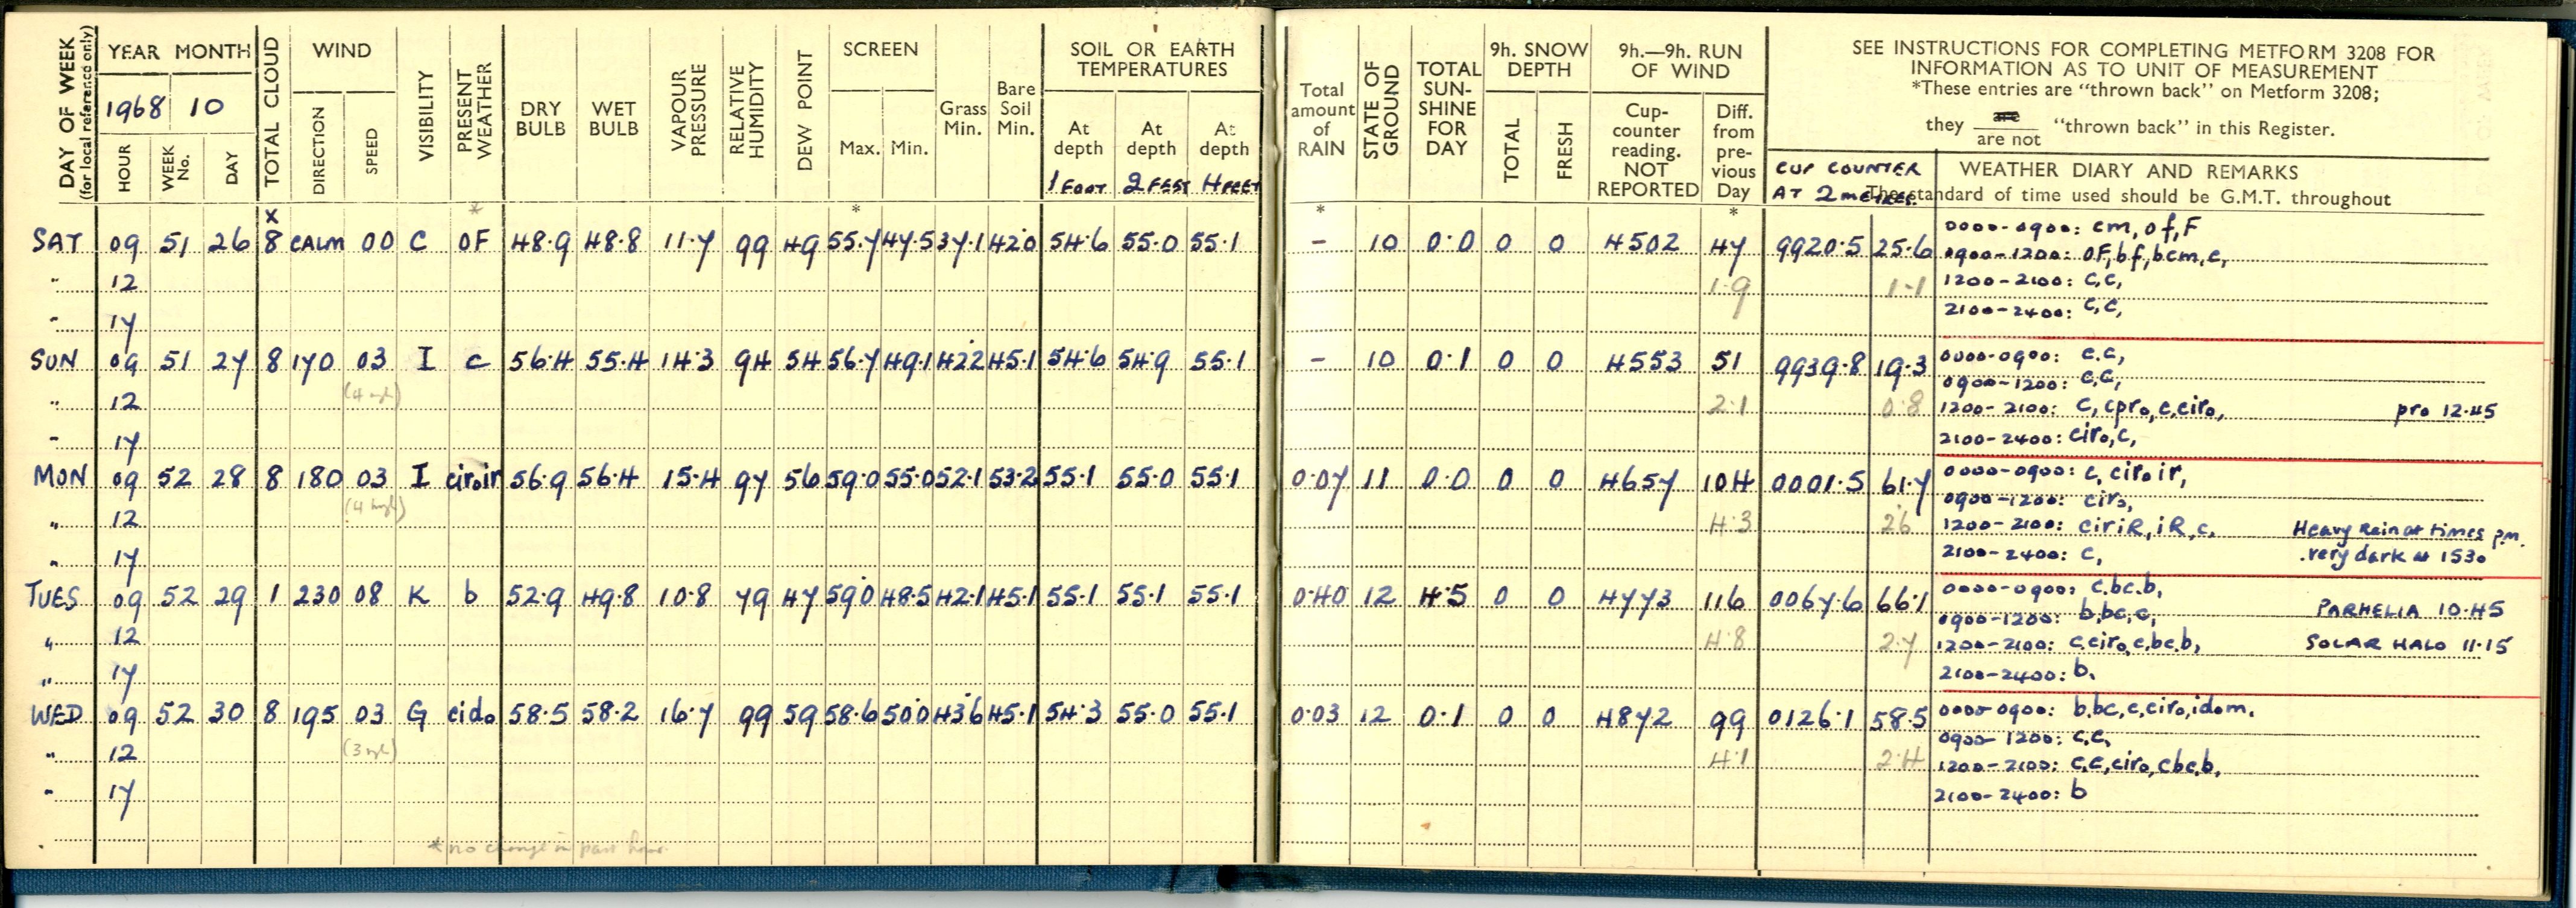 DAY OF WEEK
(for local reference only)
YEAR MONTH
1968 10
HOUR
WEEK No.
DAY
TOTAL CLOUD
WIND
DIRECTION
SPEED
VISIBILITY
PRESENT WEATHER
DRY BULB
WET BULB
VAPOUR PRESSURE
RELATIVE HUMIDITY
DEW POINT
SCREEN
Max. Min.
Grass Min.
Bare Soil Min.
SOIL OR EARTH TEMPERATURES
At depth At depth At depth
1 FOOT 2 FEET 4 FEET
Total amount of RAIN
STATE OF GROUND
TOTAL SUN-SHINE FOR DAY
9h. SNOW DEPTH
TOTAL
FRESH
9h.—9h. RUN OF WIND
Cup-counter reading. NOT REPORTED
Diff. from pre-vious Day
SEE INSTRUCTIONS FOR COMPLETING METFORM 3208 FOR
INFORMATION AS TO UNIT OF MEASUREMENT
*These entries are "thrown back" on Metform 3208;
they are / are not "thrown back" in this Register.
CUP COUNTER AT 2 METRES
WEATHER DIARY AND REMARKS
The standard of time used should be G.M.T. throughout
x * * * *
SAT 09 51 26 8 CALM 00 C OF 48·9 48·8 11·7 99 49 55·7 47·5 37·1 42·0 54·6 55·0 55·1 – 10 0·0 0 0 4502 47 9920·5 25·6 0000-0900: cm, of, F
0900-1200: OF, bf, bcm, c,
" 12 1·9 1·1 1200-2100: c,c,
" 17 2100-2400: c,c,
SUN 09 51 27 8 170 03 I c 56·4 55·4 14·3 94 54 56·7 49·1 42·2 45·1 54·6 54·9 55·1 – 10 0·1 0 0 4553 51 9939·8 19·3 0000-0900: c.c,
0900-1200: c,c,
" 12 (4 mph) 2·1 0·8 1200-2100: c, cpro, c, ciro, pro 12.45
" 17 2100-2400: ciro, c,
MON 09 52 28 8 180 03 I ciroir 56·9 56·4 15·4 97 56 59·0 55·0 52·1 53·2 55·1 55·0 55·1 0·07 11 0·0 0 0 4657 104 0001·5 61·7 0000-0900: c, ciroir,
0900-1200: ciro,
" 12 (4 mph) 4·3 2·6 1200-2100: ciriR, iR, c, Heavy Rain at times p.m.
" 17 2100-2400: c, very dark at 1530
TUES 09 52 29 1 230 08 K b 52·9 49·8 10·8 79 47 59·0 48·5 42·1 45·1 55·1 55·1 55·1 0·40 12 4·5 0 0 4773 116 0067·6 66·1 0000-0900: c.bc.b,
PARHELIA 10.45
0900-1200: b,bc,c,
" 12 4·8 2·7 1200-2100: c,ciro,c,bc.b, SOLAR HALO 11.15
" 17 2100-2400: b.
WED 09 52 30 8 195 03 G cido 58·5 58·2 16·7 99 59 58·6 50·0 43·6 45·1 54·3 55·0 55·1 0·03 12 0·1 0 0 4872 99 0126·1 58·5 0000-0900: b,bc,c,ciro,idom.
0900-1200: c,c,
" 12 (3 mph) 4·1 2·4 1200-2100: c,c,ciro,cbc,b,
" 17 2100-2400: b
* no change in past hour